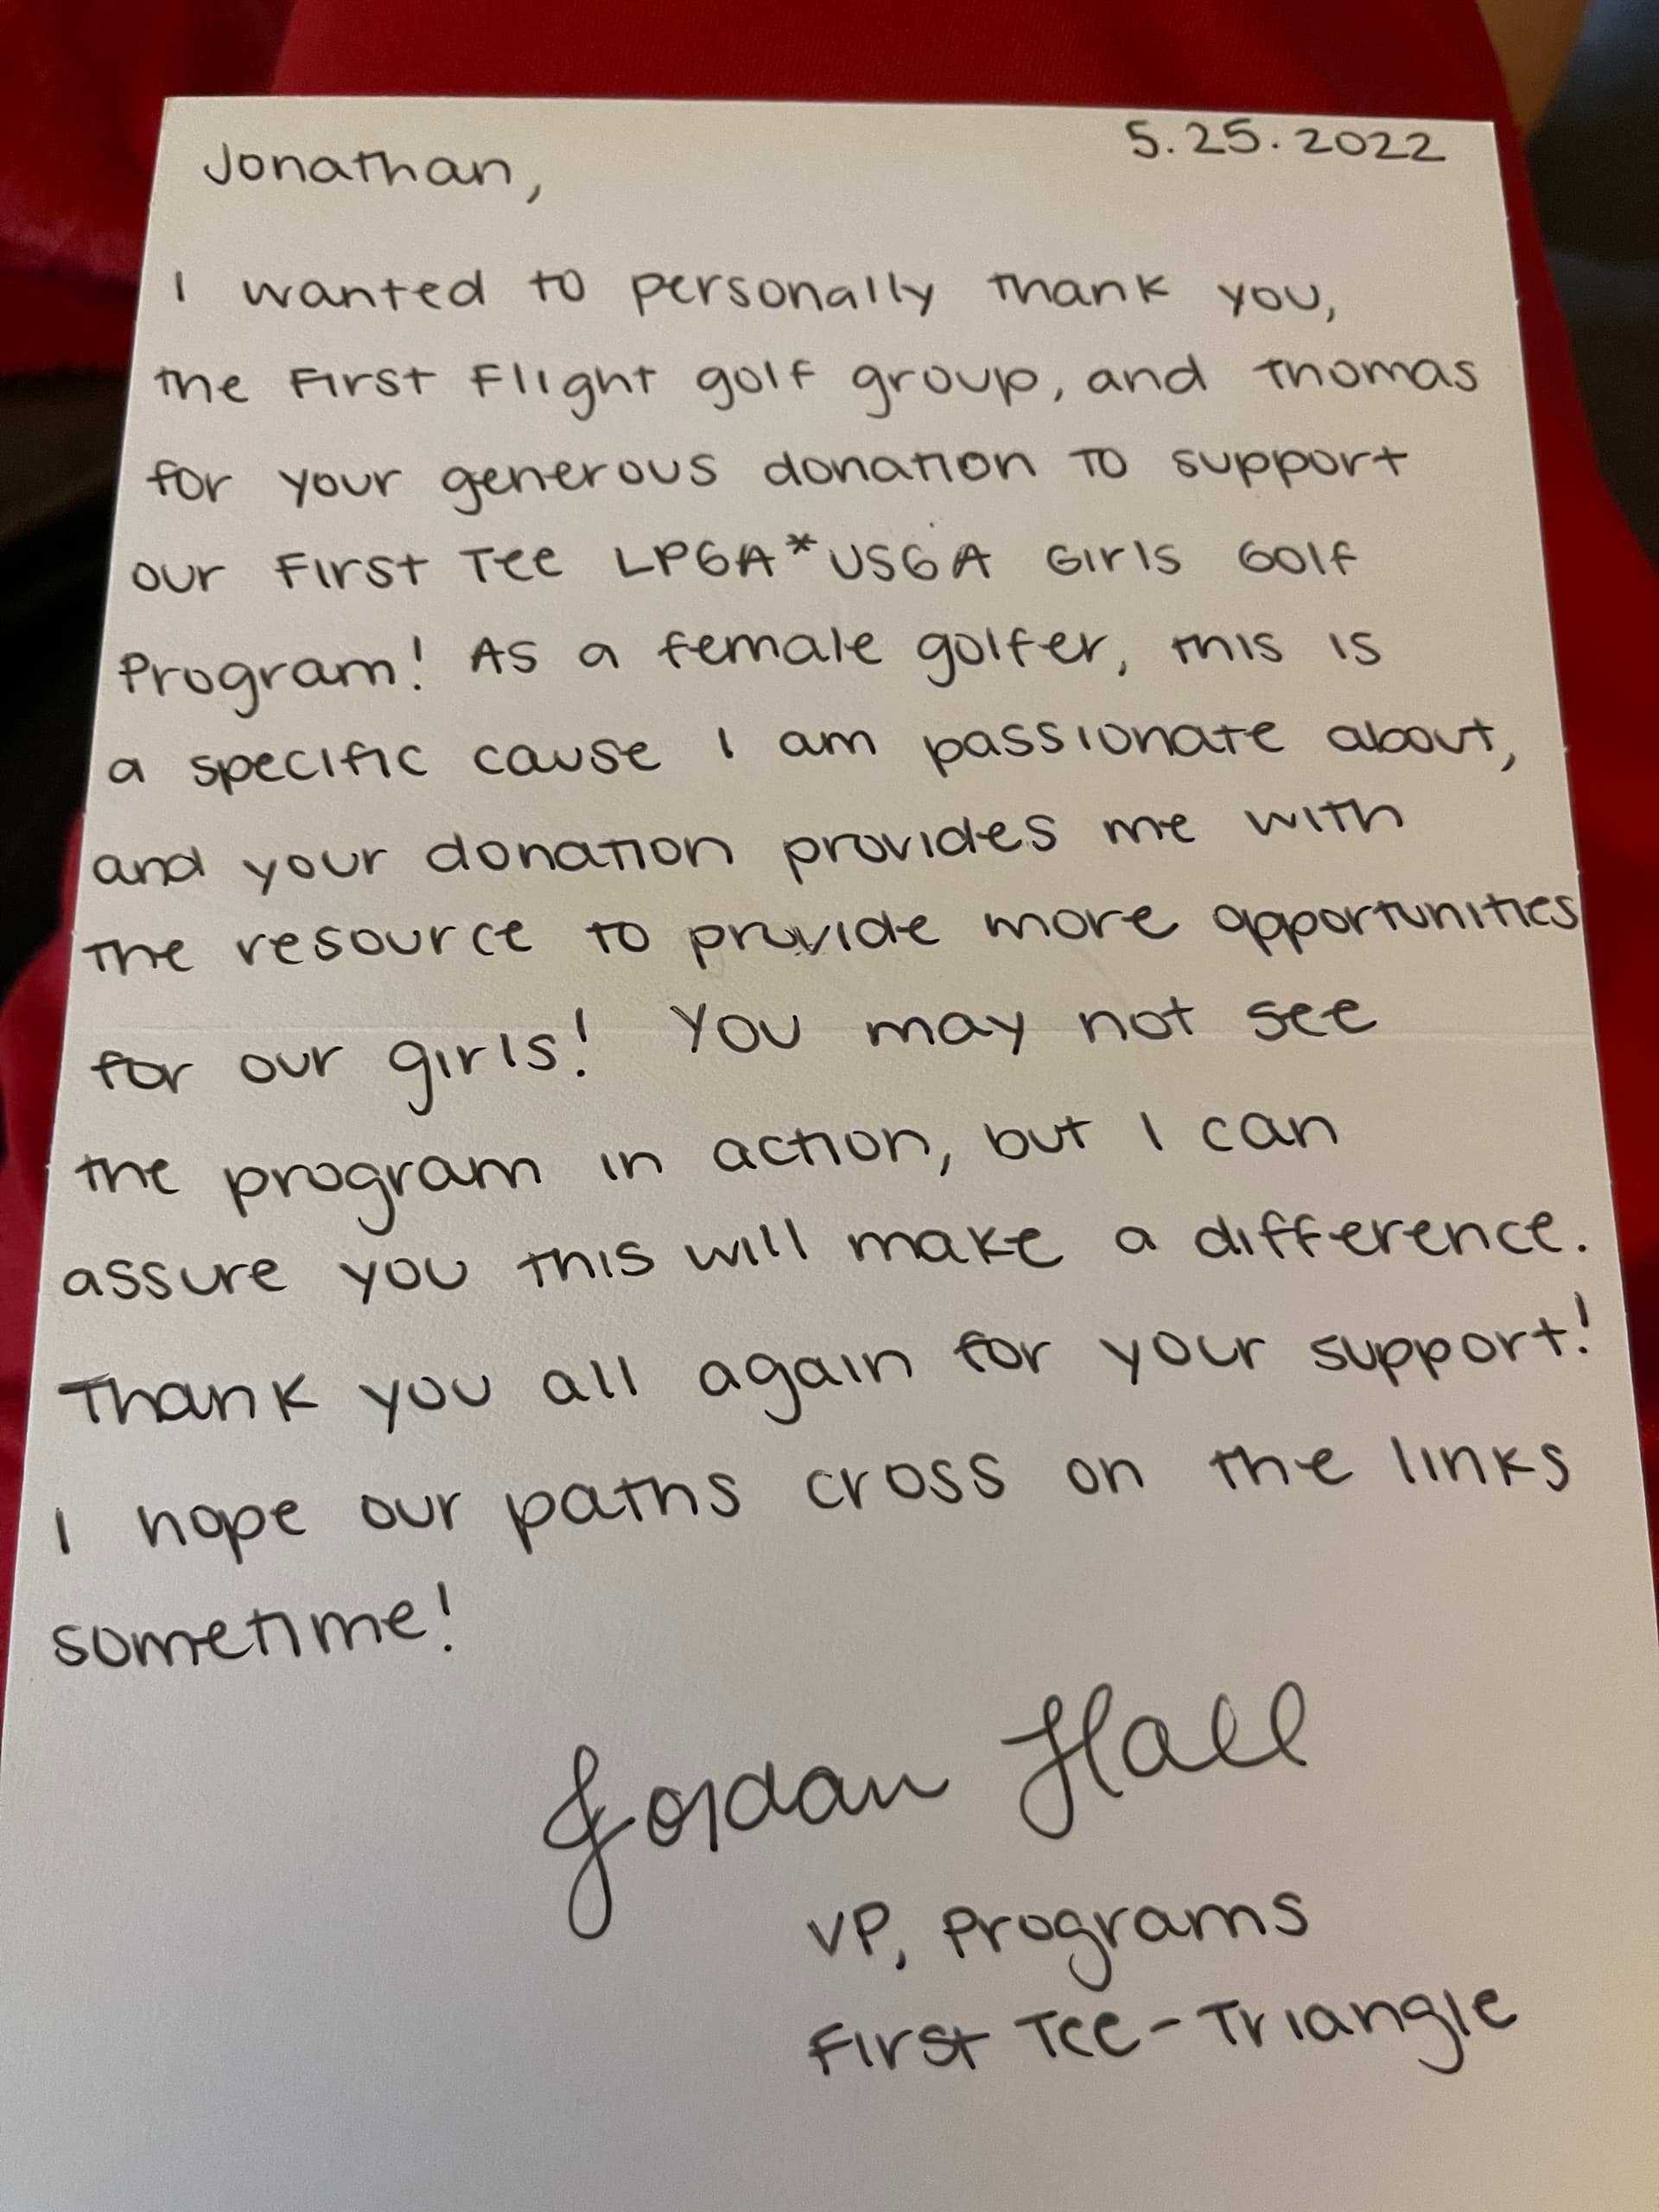 5.25.2022
Jonathan,
I wanted to personally thank you,
the First Flight golf group, and Thomas
for your generous donation to support
our First Tee LPGA*USGA Girls Golf
Program! As a female golfer, this is
a specific cause I am passionate about,
and your donation provides me with
the resource to provide more opportunities
for our girls! You may not see
the program in action, but I can
assure you this will make a difference.
Thank you all again for your support!
I hope our paths cross on the links
sometime!
Jordan Hall
VP, Programs
First Tee-Triangle